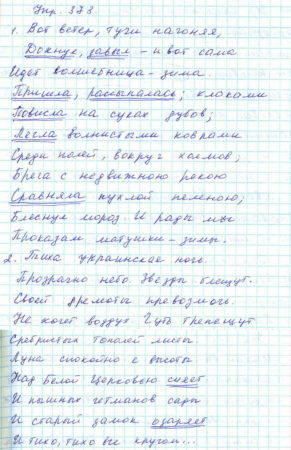 Упр. 373.
1. Вот ветер, тучи нагоняя,
Дохнул, завыл – и вот сама
Идет волшебница – зима.
Пришла, рассыпалась; клоками
Повисла на суках дубов;
Легла волнистыми коврами
Среди полей, вокруг холмов;
Брега с недвижною рекою
Сравняла пухлой пеленою;
Блеснул мороз. И рады мы
Проказам матушки – зимы.
2. Тиха украинская ночь.
Прозрачно небо. Звезды блещут.
Своей дремоты превозмочь
Не хочет воздух. Чуть трепещут
Сребристых тополей листы
Луна спокойно с высоты
Над Белой Церковью сияет
И пышных гетманов сады
И старый замок озаряет
И тихо, тихо все кругом...